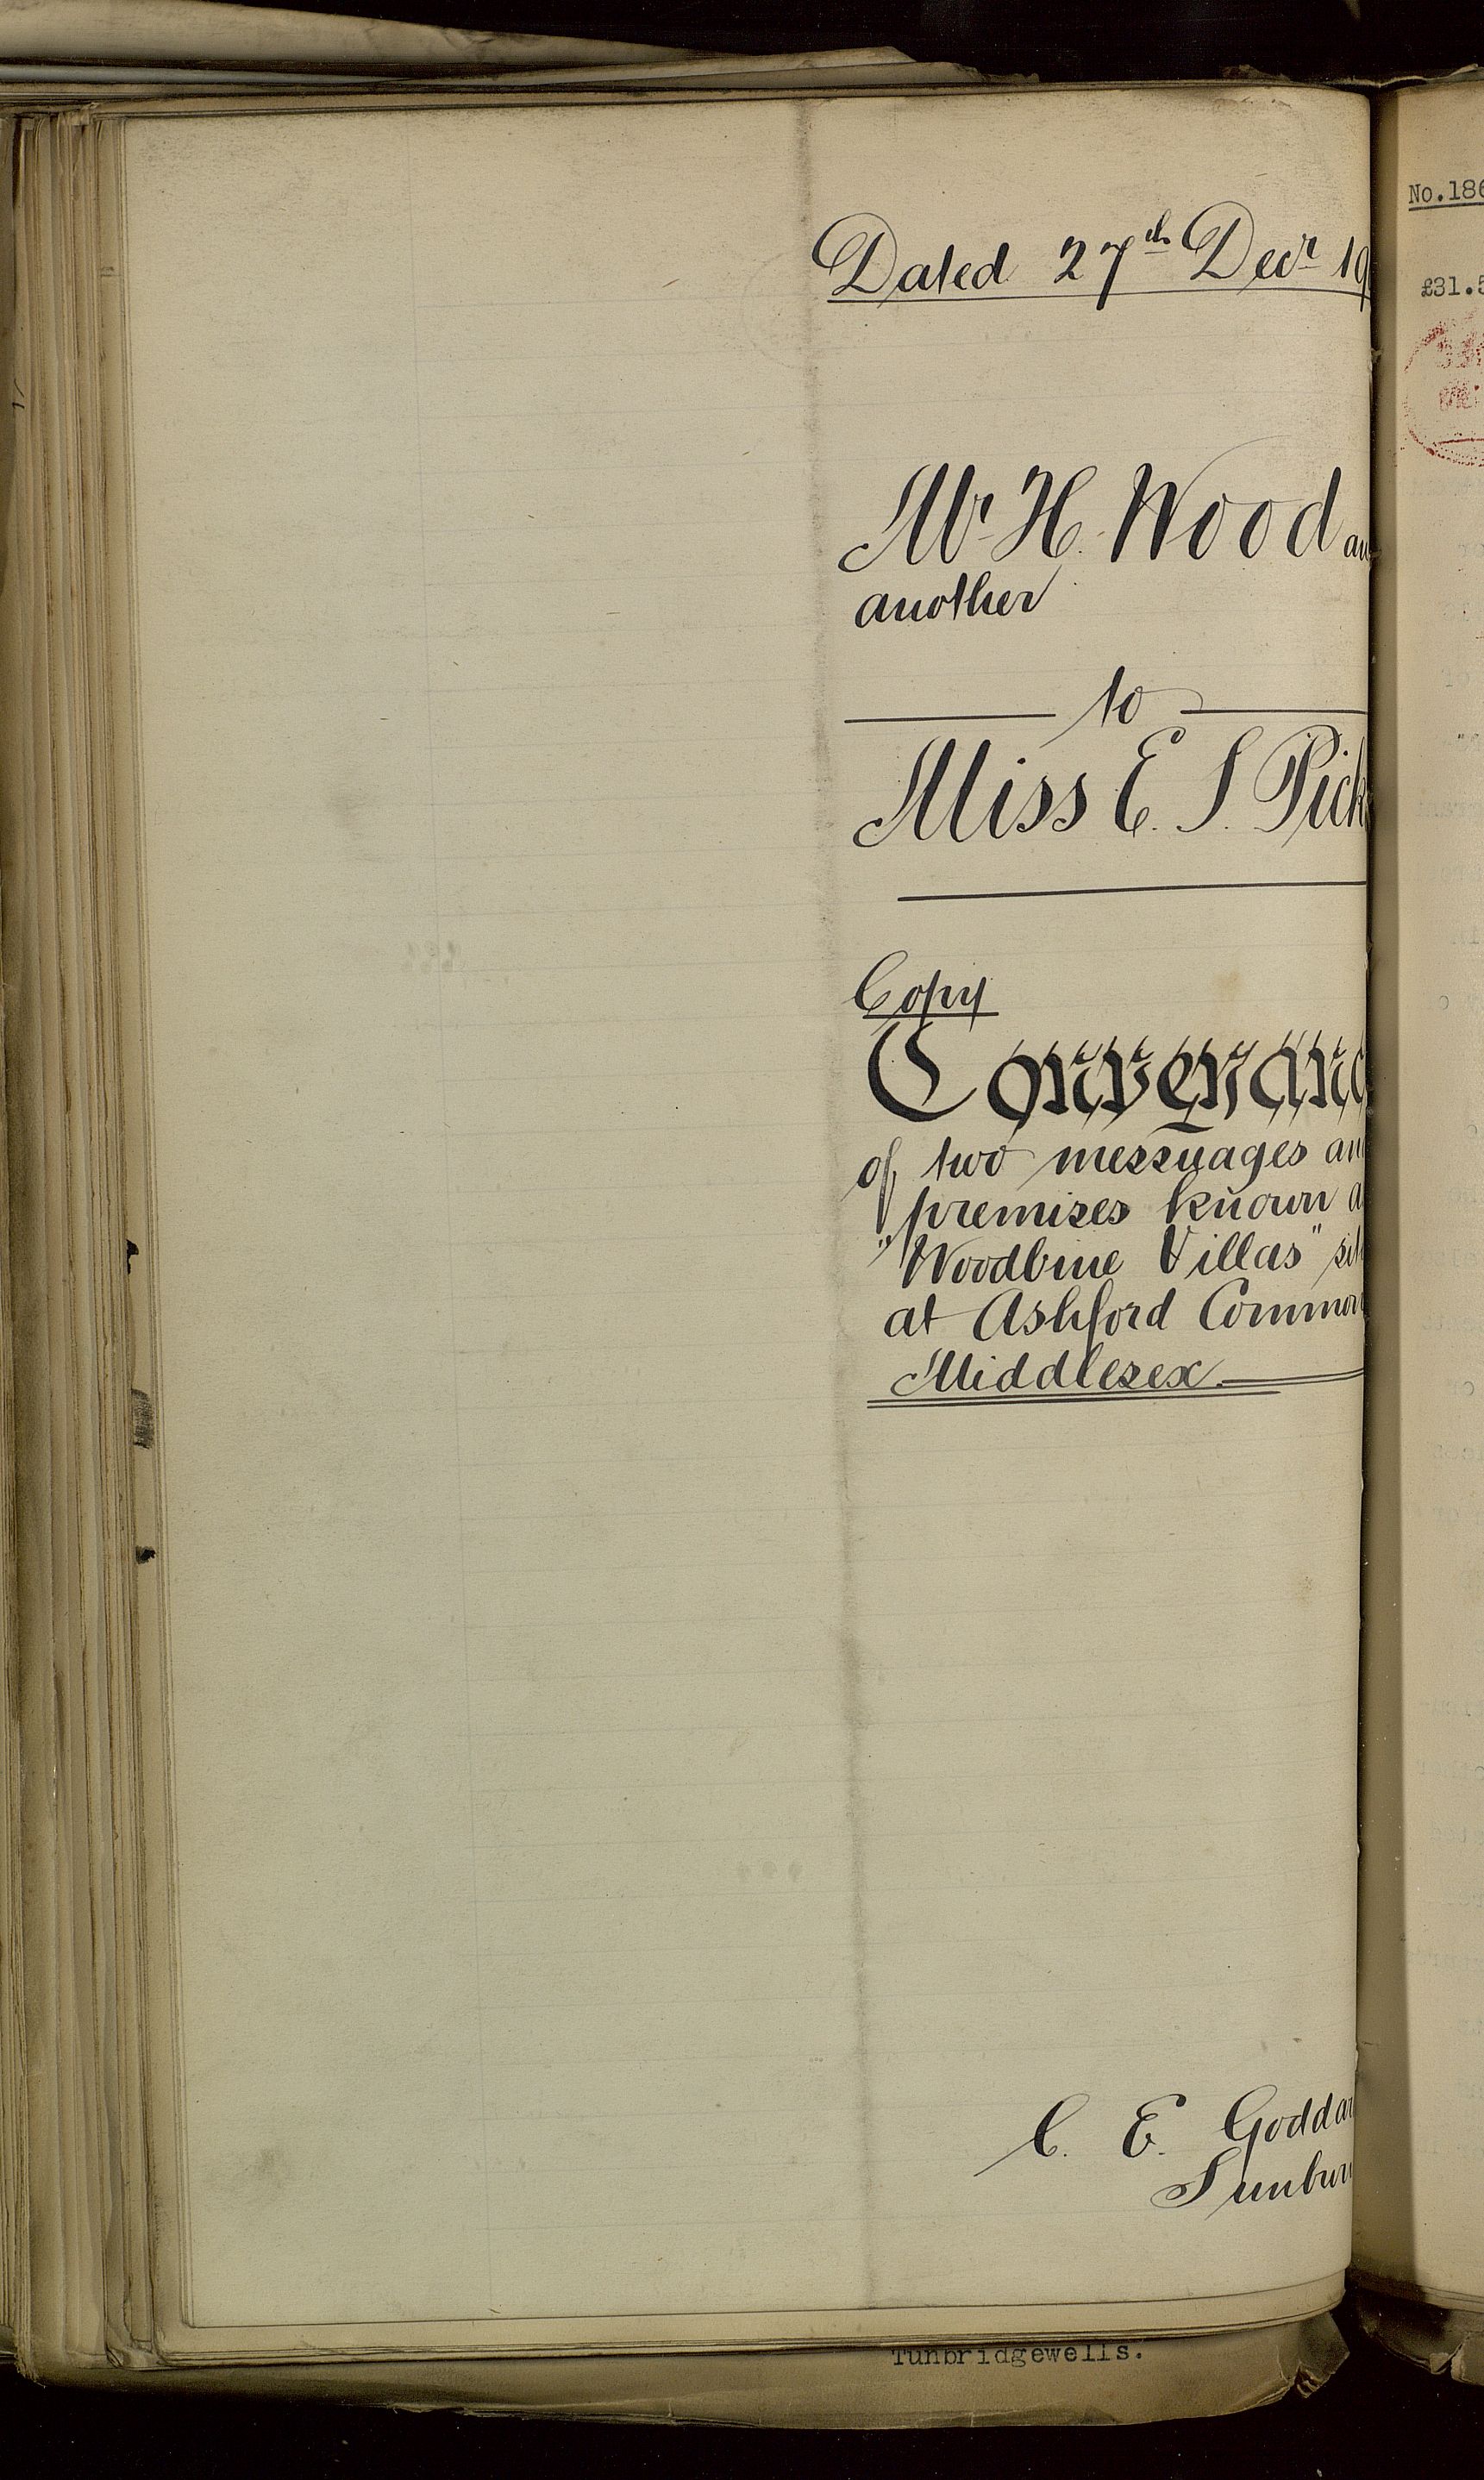 Dated 27th Decr 19
Mr H. Wood an
another
to
Miss E. S. Pick
Copy
Conveyanc
of two messuages an
premises known a
"Woodbine Villas" sit
at Ashford Common
Middlesex
C. E. Goddar
Sunbur
Tunbridgewells.
No.186
£31.5